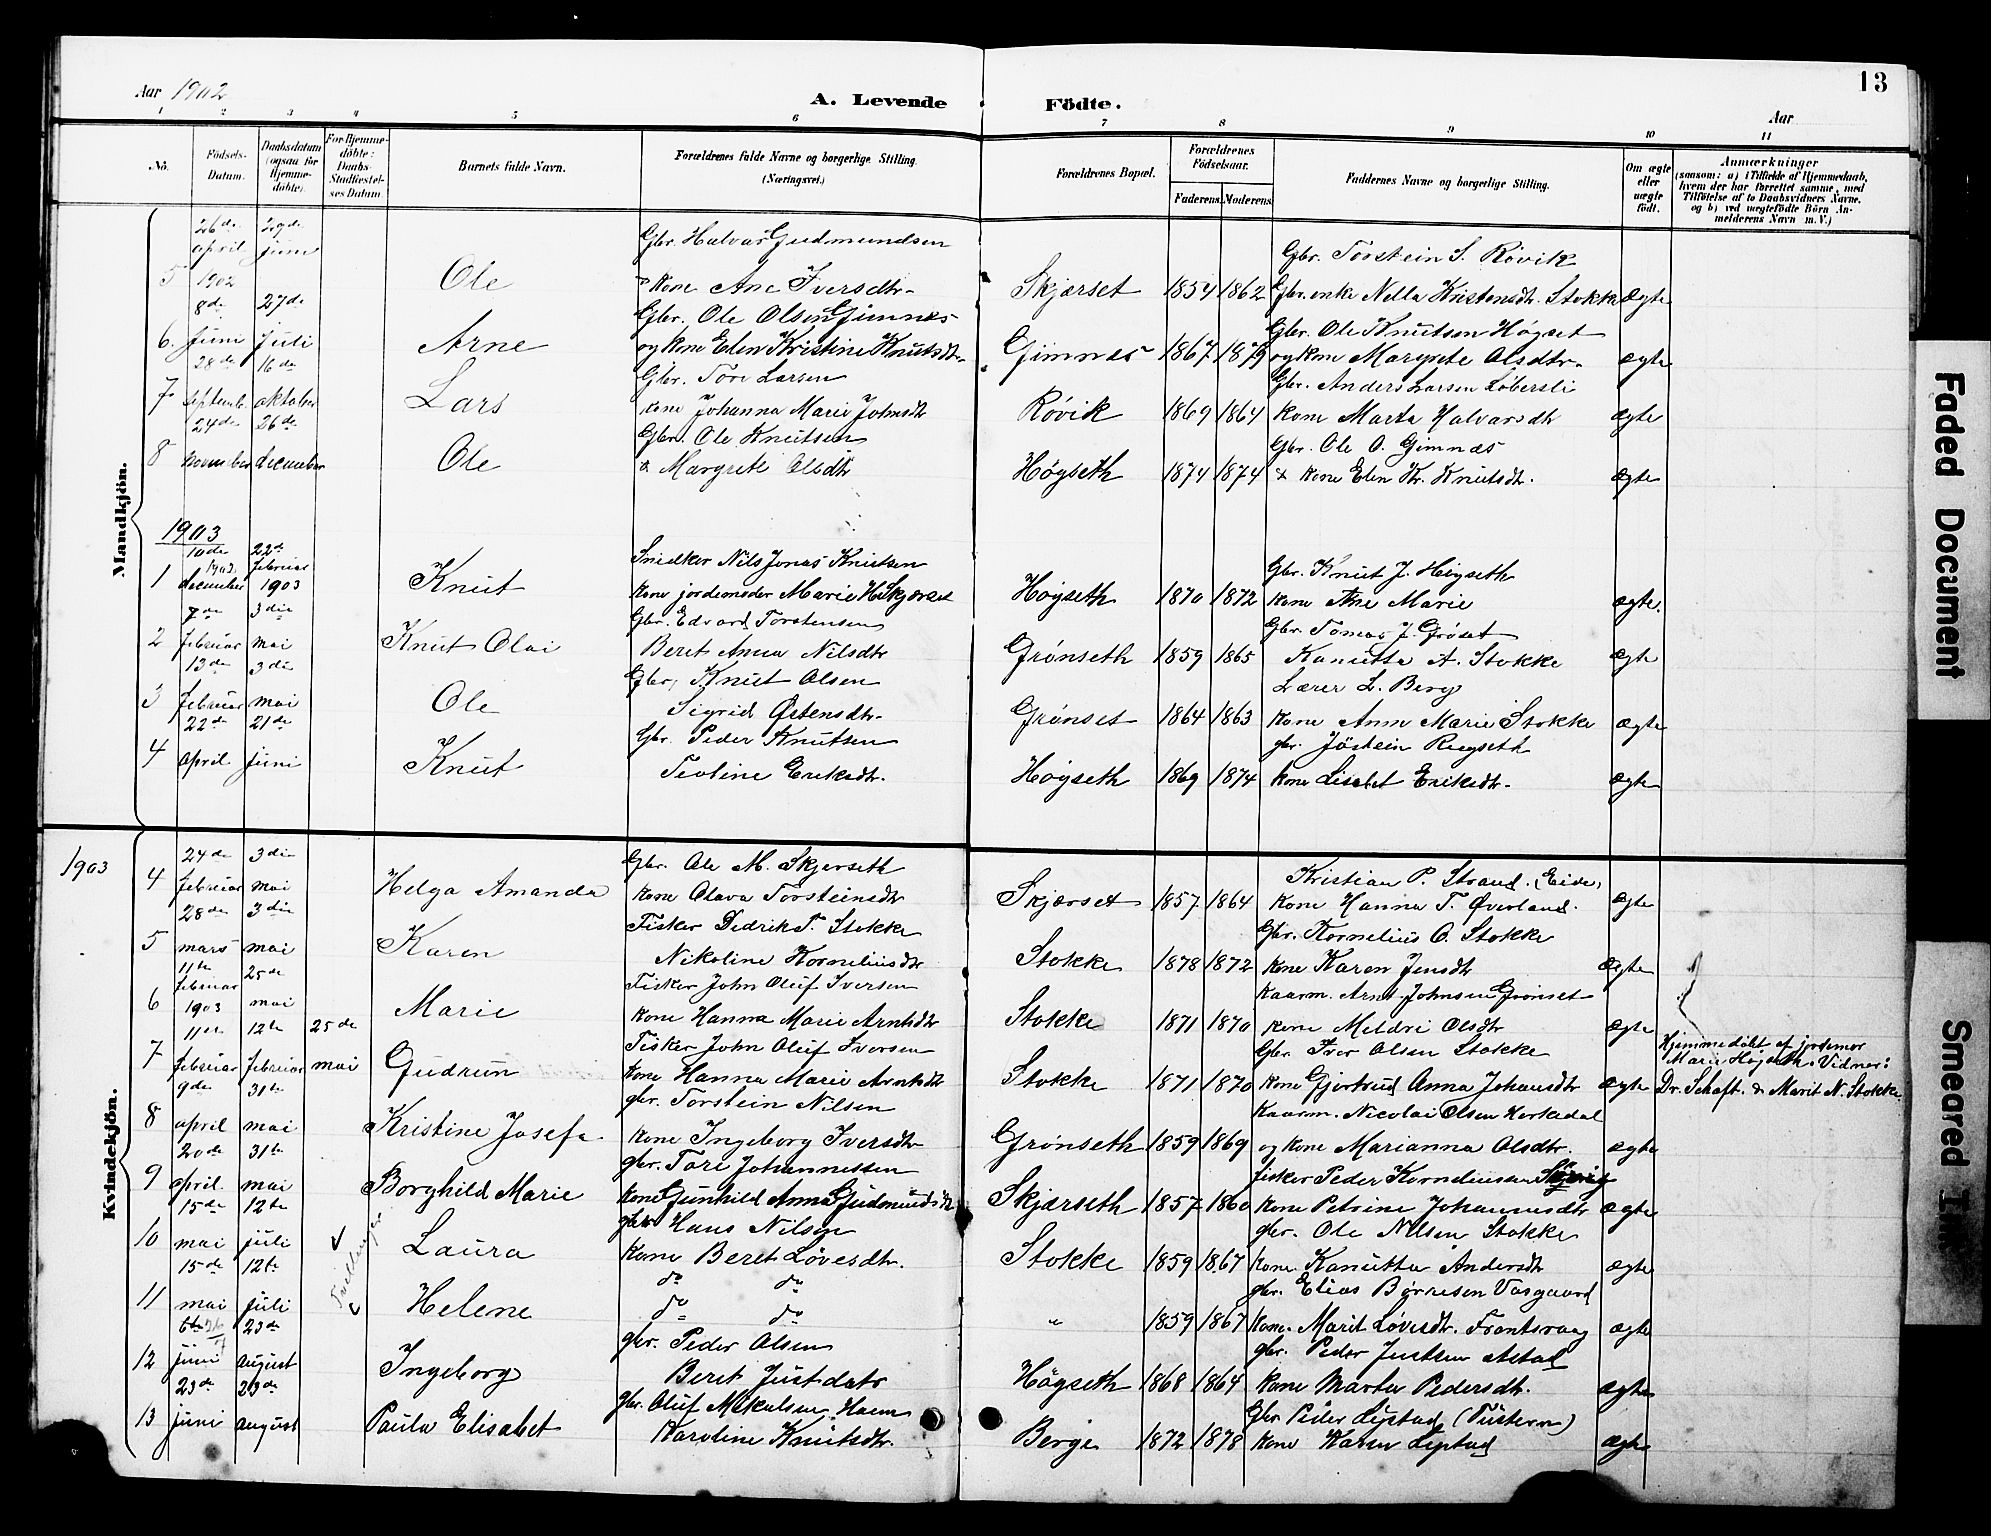 Aar 1902
A. Levende Födte.
Aar
13
1 2 3 4 5 6 7 8 9 10 11
No. Födsels-Datum. Daabsdatum (ogsaa for Hjemme-döbte). For Hjemme-döbte: Daabs-Stadfæstel-ses Datum. Barnets fulde Navn. Forældrenes fulde Navne og borgerlige Stilling. (Næringsvei.) Forældrenes Bopæl. Forældrenes Födselsaar. Faderens. Moderens. Faddernes Navne og borgerlige Stilling. Om ægte eller uægte födt. Anmærkninger (saasom: a) i Tilfælde af Hjemmedaab, hvem der har forrettet samme, med Tilföielse af to Daabsvidners Navne, og b) ved uægtefödte Börn An-melderens Navn m. V.)
Mandkjön.
26de 29de Gbr. Halvar Gudmundsen Gbr. Torstein S. Røvik
5 april 1902 juni Ole kone Ane Iversdtr. Skjærset 1854 1862 Gbr. enke Nella Kristensdtr. Stokke ægte
8de 27de Gbr. Ole Olsen Gimnes Gbr. Ole Knutsen Høgset
6. Juni Juli Arne og kone Elen Kristine Knutsdtr. Gimnes 1867 1879 og kone Margrete Olsdtr. ægte
28de 16de Gbr. Tore Larsen Gbr. Anders Larsen Løbersli
7 septemb. oktober Lars kone Johanna Marie Johnsdtr Røvik 1869 1864 kone Marta Halvarsdtr ægte
24de 26de Gbr. Ole Knutsen Gbr. Ole O. Gimnæs
8 november december Ole & Margrete Olsdtr Høgseth 1874 1874 & kone Elen Kr. Knutsdtr. ægte
1903
10de 22de Snedker Nils Jonas Knutsen Gbr. Knut J. Høgseth
1 december februar 1903 Knut kone jordemoder Marie H Skjærset Høgseth 1870 1872 kone Ane Marie ægte.
7de 3die Gbr. Edvard Torstensen Gbr. Tomas J. Grøset
2 februar mai Knut Olai Beret Anna Nilsdtr Grønseth 1859 1865 Kanutta A. Stokke ægte
13de 3die Gbr. Knut Olsen Lærer L. Berg
3 februar mai Ole Sigrid Østensdtr. Grønset 1864 1863 kone Ann Marie Stokke ægte
22de 21de Gbr. Peder Knutsen gbr. Jöstein Rugseth
4 april juni Knut Teoline Eriksdtr. Høgseth 1869 1874 kone Lisabet Eriksdtr. ægte
Kvindekjön.
1903
24de 3die Gbr. Ole M. Skjerseth Kristian P. Strand. (Eide)
4 februar mai Helga Amanda kone Olava Torsteinsdtr Skjærset 1857 1864 kone Hanna T. Øverland. ægte
28de 3die Fisker Didrik T. Stokke Gbr. Kornelius O. Stokke
5 mars mai Karen Nikoline Korneliusdtr Stokke 1878 1872 kone Karen Jensdtr ægte
11te 25de Fisker John Oluf Iversen Kaarm. Arnt Johnsen Grønset
6 februar 1903 mai Marie kone Hanna Marie Arntsdtr Stokke 1871 1870 kone Meldri Olsdtr ægte
11te 12te 25de Fisker John Oluf Iversen Gbr. Iver Olsen Stokke
7 februar februar mai Gudrun kone Hanna Marie Arntsdtr Stokke 1871 1870 kone Gjertrud Anna Johansdtr ægte Hjemmedöbt af jordemor Marie Högseth. Vidner: Dr. Schaft. & Marit N. Stokke
9de 31te gbr. Torstein Nilsen Kaarm. Nicolai Olsen Korkedal
8 april mai Kristine Josefa kone Ingeborg Iversdtr Grønseth 1859 1869 og kone Marianna Olsdtr. ægte
20de 31te gbr. Tore Johannessen fisker Peder Korneliussen
9 april mai Borghild Marie kone Gunhild Anna Gudmundsdtr Skjærseth 1857 1860 kone Petrine Johannesdtr ægte
15de 12te gbr Hans Nilsen gbr. Ole Nilsen Stokke
10 mai juli Tvillinger Laura kone Beret Løvesdtr. Stokke 1859 1867 kone. Kanutta Andersdtr ægte
15de 12te do do gbr. Elias Børresen Vasgaard
11 mai juli Helene do do " 1859 1867 kone. Marit Løvesdtr. Frantsvaag ægte
6te 23de gbr. Peder Olsen gbr. Peder Justsen Astad
12 juni august Ingeborg Beret Justdatr Högseth 1868 1864 kone Marta Pedersdtr. ægte
23de 23de gbr. Oluf Mikalsen Haem Gbr Peder Lystad (Tustern)
13 juni august Paula Elisabet Karoline Knutsdtr. Berge 1872 1878 kone Karen Lystad ægte
Faded Document
Smeared Ink